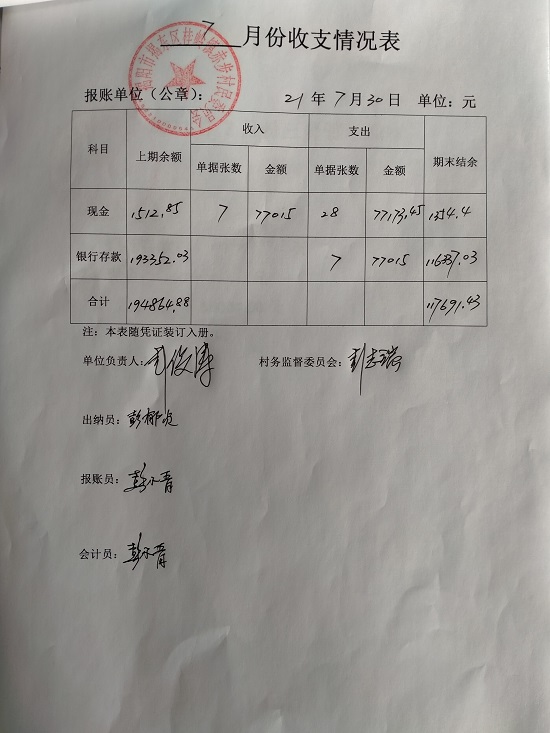 7 月份收支情况表
报账单位（公章）： 21 年 7 月 30 日 单位：元
科目 上期余额 收入 支出 期末结余
单据张数 金额 单据张数 金额
现金 1512.85 7 77015 28 77173.45 1354.4
银行存款 193352.03 7 77015 116337.03
合计 194864.88 117691.43
注：本表随凭证装订入册。
单位负责人： 村务监督委员会：
出纳员：
报账员：
会计员：